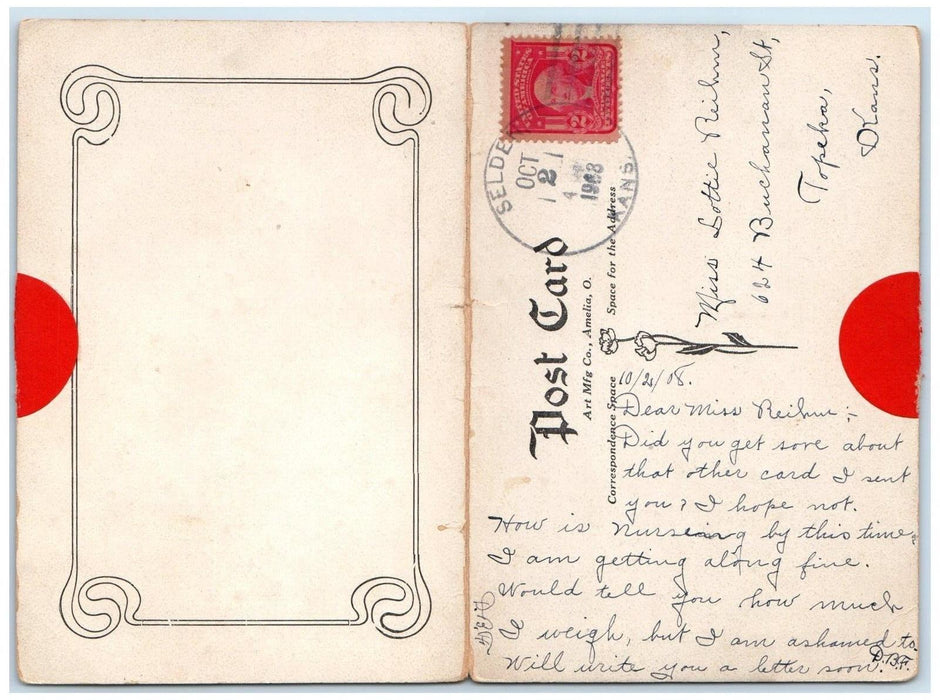 UNITED STATES OF AMERICA
2 2
SELDEN
OCT
2
1908
KANS.
Post Card
Art Mfg Co., Amelia, O.
Correspondence Space
Space for the Address
Miss Lottie Reihm,
624 Buchanan St,
Topeka,
Kans.
10/2/08.
Dear Miss Reihm;-
Did you get sore about
that other card I sent
you? I hope not.
How is nurseing by this time.
I am getting along fine.
Would tell you how much
I weigh, but I am ashamed to.
Will write you a letter soon.
D.B.F.